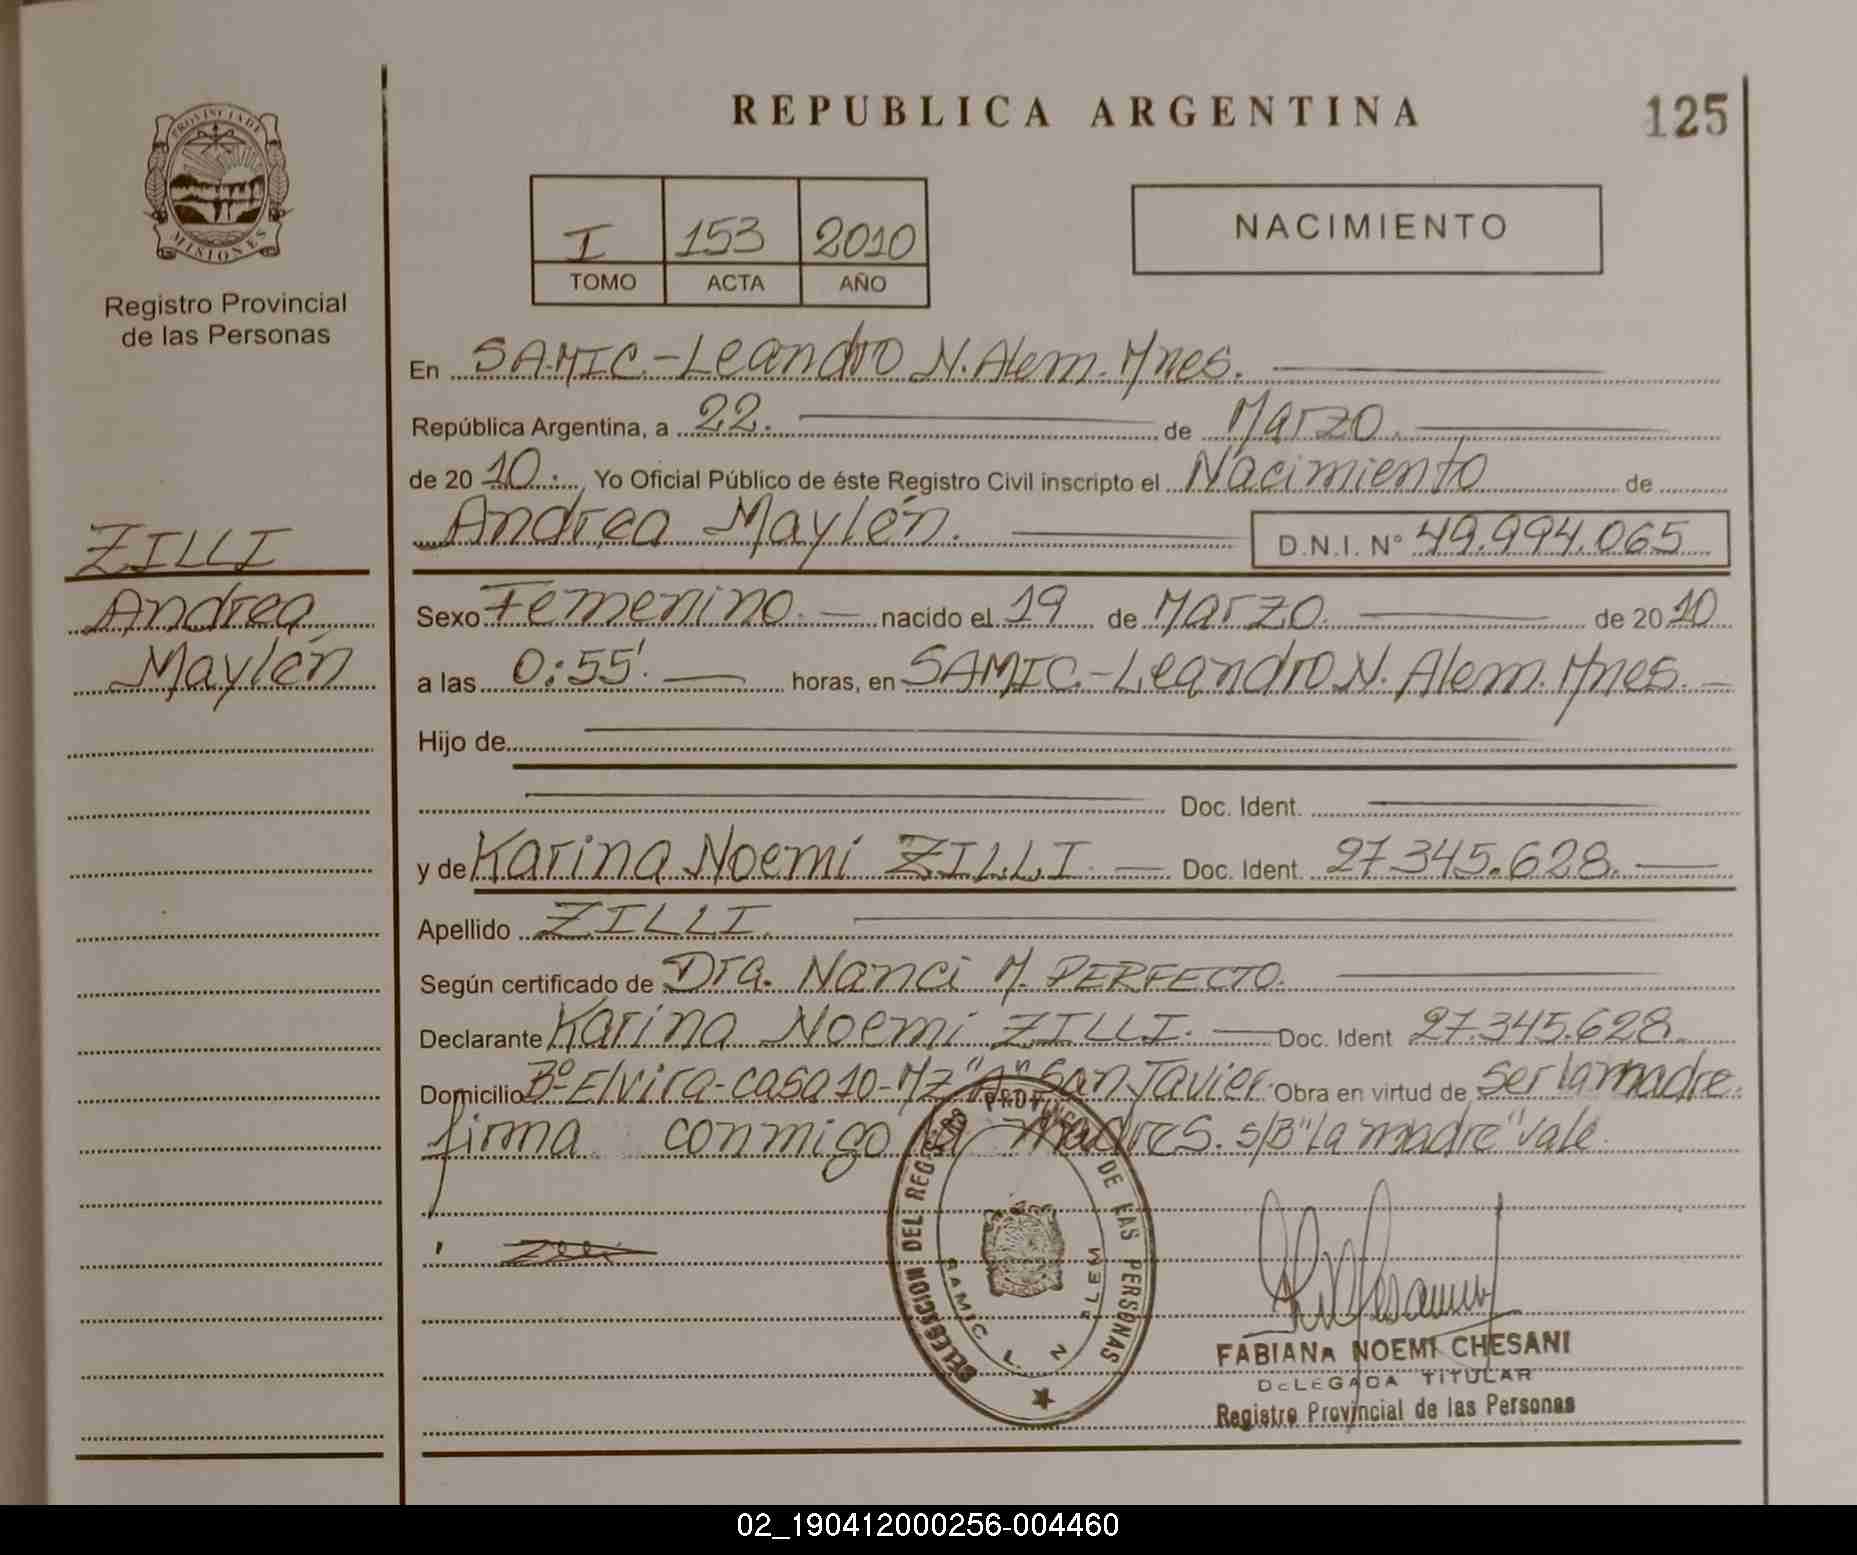 REPUBLICA ARGENTINA
125
PROVINCIA DE
MISIONES
Registro Provincial
de las Personas
I 153 2010
TOMO ACTA AÑO
NACIMIENTO
En SAMIC.-Leandro N. Alem. Mnes.
República Argentina, a 22. de Marzo.
de 2010. Yo Oficial Público de éste Registro Civil inscripto el Nacimiento de
Andrea Maylén. D.N.I. Nº 49.994.065
ZILLI
Andrea
Maylén
Sexo Femenino. nacido el 19 de Marzo. de 2010
a las 0:55'. horas, en SAMIC.-Leandro N. Alem. Mnes.
Hijo de
Doc. Ident.
y de Karina Noemí ZILLI. Doc. Ident. 27.345.628.
Apellido ZILLI.
Según certificado de Dra. Nanci M. PERFECTO.
Declarante Karina Noemi ZILLI. Doc. Ident 27.345.628.
Domicilio Bº Elvira-casa 10-Mz "A" San Javier. Obra en virtud de ser la madre.
firma conmigo la madre S. s/B "La madre" vale.
Zilli
DELEGACION DEL REGISTRO PROVINCIAL DE LAS PERSONAS
SAMIC L. N ALEM
FABIANA NOEMI CHESANI
DELEGADA TITULAR
Registro Provincial de las Personas
02_190412000256-004460